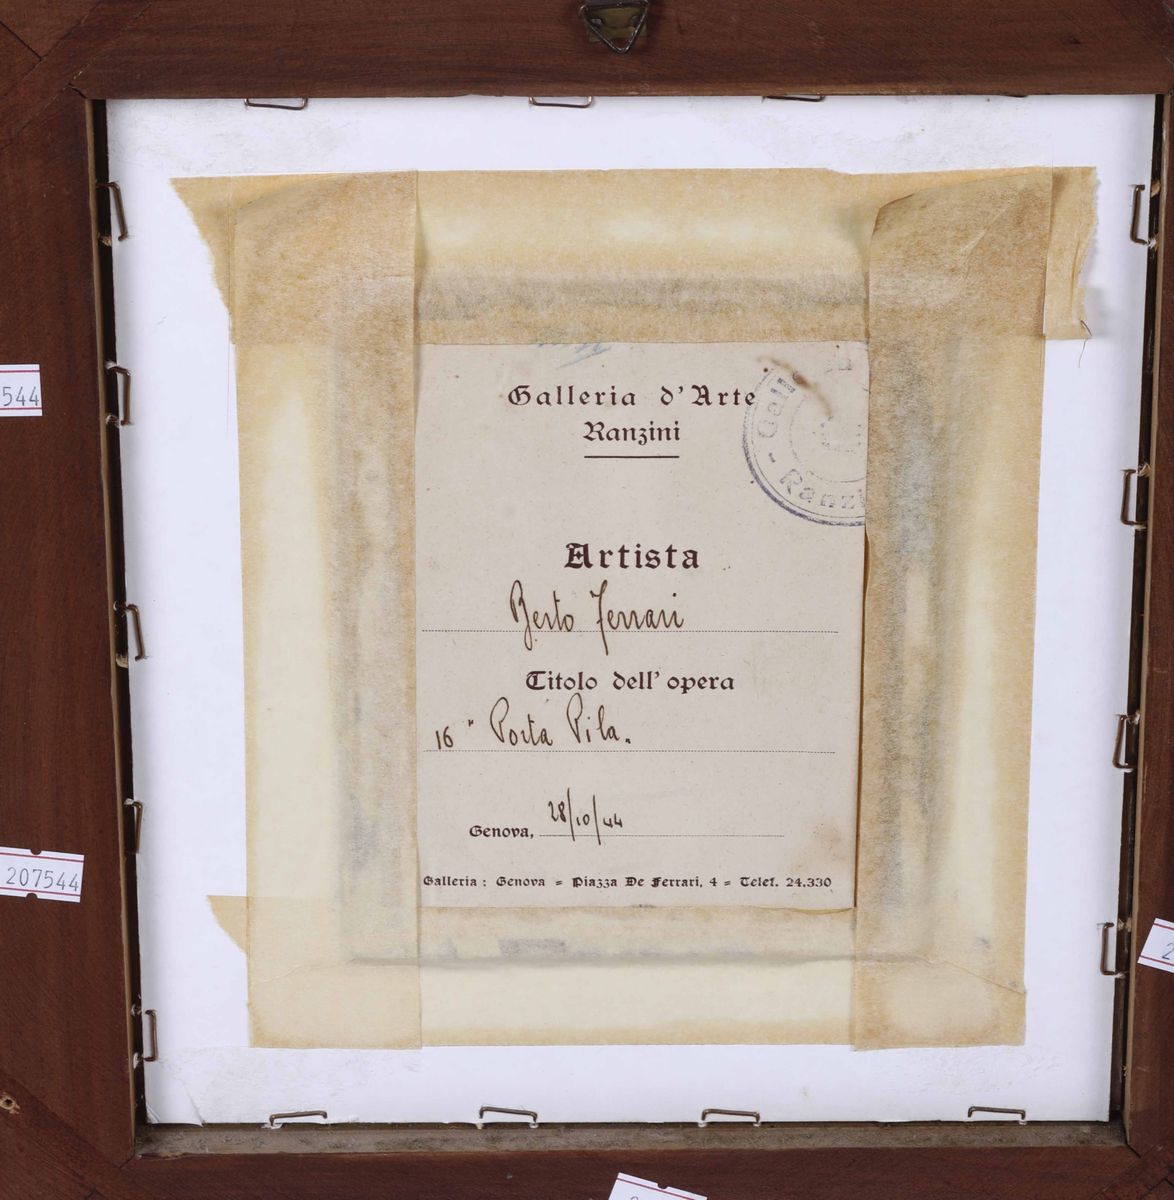 Galleria d'Arte
Ranzini
- Gall
Ranz
Artista
Berto Ferrari
Titolo dell'opera
16 " Porta Pila.
Genova, 28/10/44
Galleria : Genova = Piazza De Ferrari, 4 = Telef. 24.330
544
207544
2